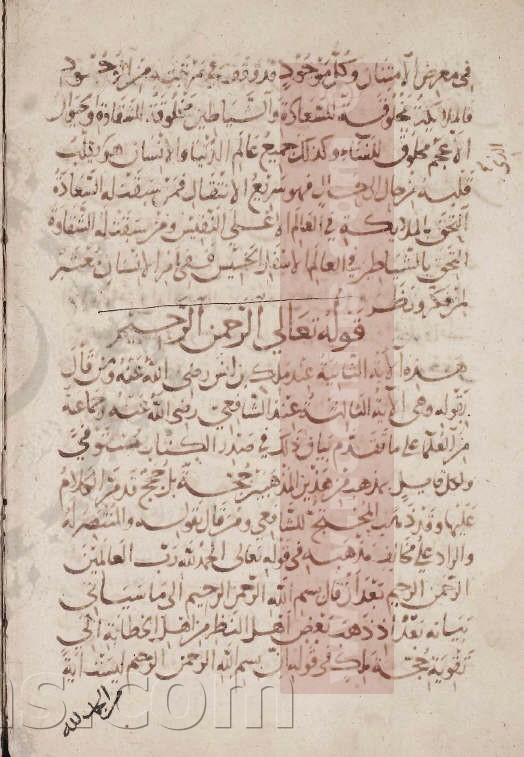 في معرض الامتنان وكل موجود قد وقف في مرتبته من الوجود
فالملايكة مخلوقة للسعادة والشياطين مخلوقة للشقاوة والحيوان
الاعجم مخلوق للفناء وكذلك جميع عالم الدنيا والانسان هو يقلب
قلبه من حال الى حال فهو سريع الانتقال فمن سبقت له السعادة
التحق بالملايكة في العالم الاعلى النفيس ومن سبقت له الشقاوة
التحق بالشياطين في العالم الاسفل الخسيس ففي امر الانسان معتبر
لمن فكر ونظر
قوله تعالى الرحمن الرحيم
هذه الآية الثانية عند ملك بن انس رضي الله عنه ومن قال
بقوله وهي الآية الثالثة عند الشافعي رضي الله عنه وجماعة
من العلماء على ما تقدم بيان ذلك في صدر الكتاب مستوفى
ولكل قايل بمذهب من هذين المذهبين حجة بل حجج قد مر الكلام
عليها وقد ذهب المحتج للشافعي ومن قال بقوله والمنتصر له
والراد على مخالف مذهبه في قوله تعالى الحمد لله رب العالمين
الرحمن الرحيم بعد ان قال بسم الله الرحمن الرحيم الى ما سياتي
بيانه بعد اذ ذهب بعض اهل النظر من اهل الخطابة الى
تقوية حجة ملك في قوله ان بسم الله الرحمن الرحيم ليست اية